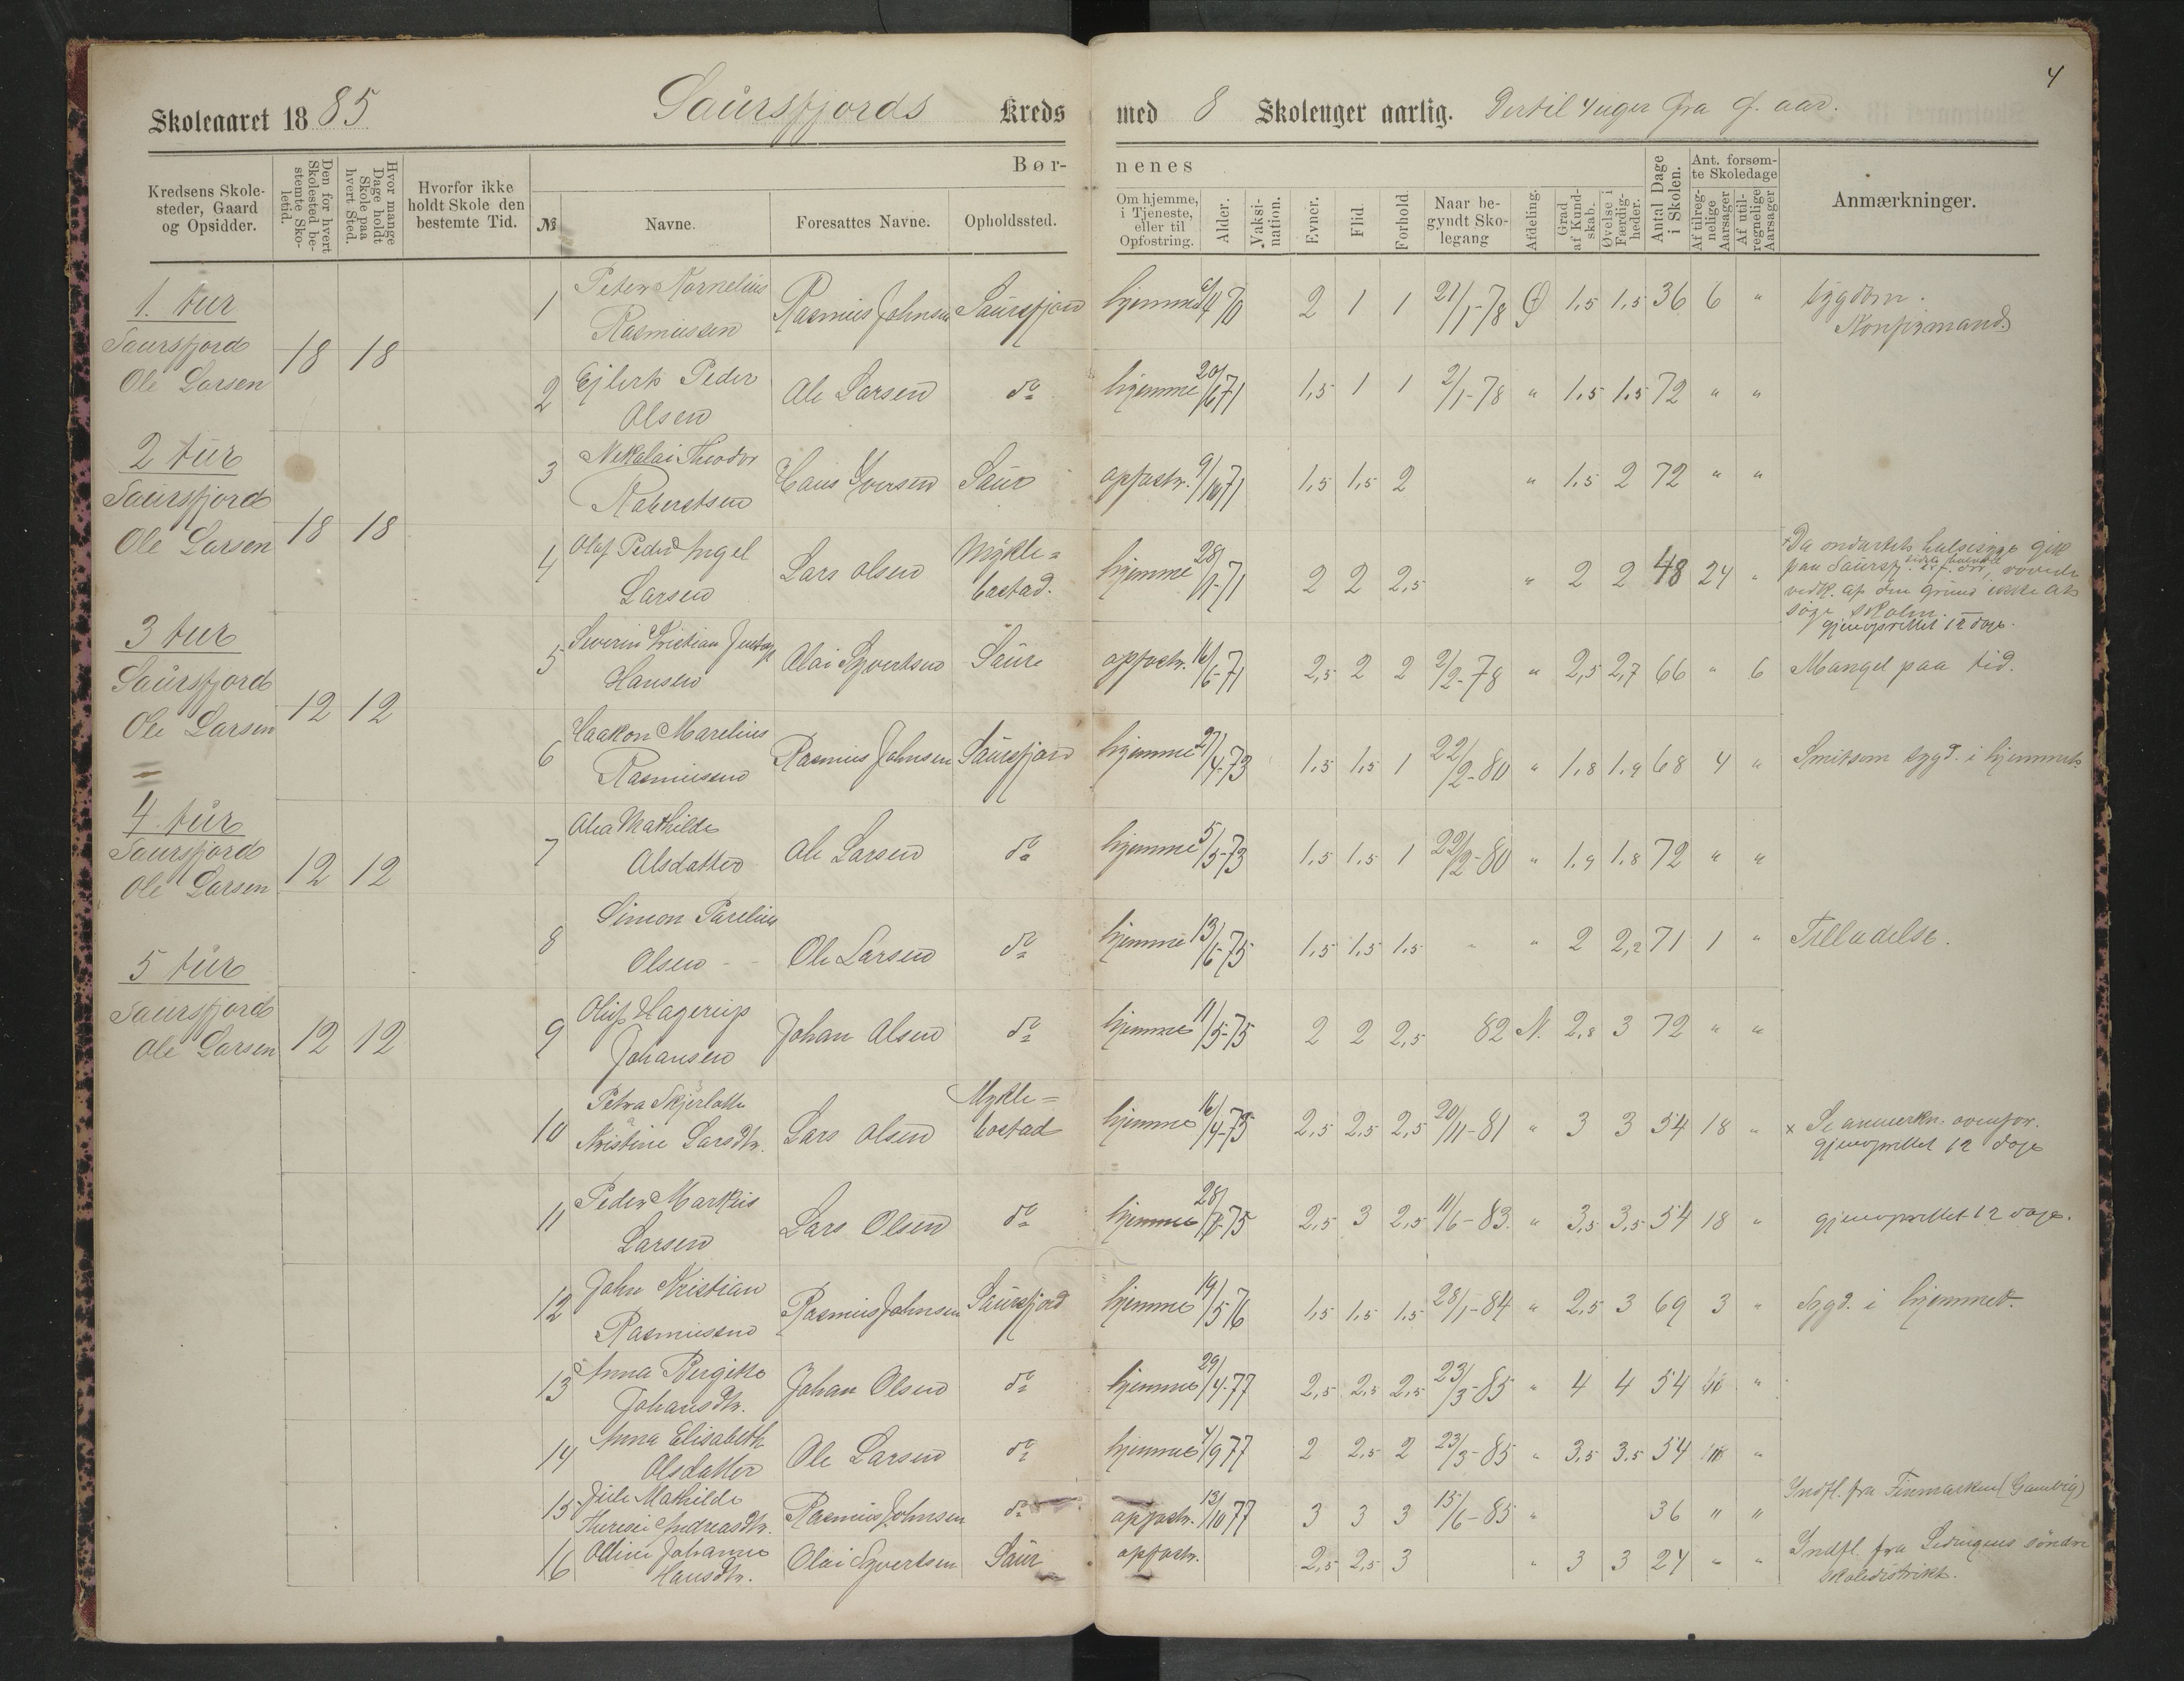 4
Skoleaaret 1885 Saursfjords Kreds med 8 Skoleuger aarlig. Dertil 4 uger fra f. aar.
Kredsens Skolesteder, Gaard og Opsidder.
Den for hvert Skolested bestemte Skoletid.
Hvor mange Dage holdt Skole paa hvert Sted.
Hvorfor ikke holdt Skole den bestemte Tid.
Børnenes
№
Navne.
Foresattes Navne.
Opholdssted.
Om hjemme, i Tjeneste, eller til Opfostring.
Alder.
Vaksination.
Evner.
Flid.
Forhold.
Naar begyndt Skolegang
Afdeling.
Grad af Kundskab.
Øvelse i Færdigheder.
Antal Dage i Skolen.
Ant. forsømte Skoledage
Af tilregnelige Aarsager
Af utilregnelige Aarsager
Anmærkninger.
1. tur
Saursfjord
Ole Larsen 18 18
2 tur
Saursfjord
Ole Larsen 18 18
3 tur
Saursfjord
Ole Larsen 12 12
4. tur
Saursfjord
Ole Larsen 12 12
5 tur
Saursfjord
Ole Larsen 12 12
1 Peter Kornelius
Rasmussen Rasmus Johnsen Saursfjord hjemme 4 70 2 1 1 21/1-78 Ø 1,5 1,5 36 6 " sygdom.
Konfirmand
2 Ejlert Peder
Olsen Ole Larsen do hjemme 20/6 71 1,5 1 1 2/1-78 " 1,5 1,5 72 " "
3 Nikolai Theodor
Robertsen Hans Iversen Saur opfostr. 9/10 71 1,5 1,5 2 " 1,5 2 72 " "
4 Olaf Peder Ingel
Larsen Lars Olsen Mykle=
bostad. hjemme 28/1-71 2 2 2,5 " 2 2 48 24 "
Da ondartet halssyge gik
paa Saursf.
vedk. af den grund ikke at
søge skolen.
gjenoprettet 12 dage.
5 Severin Kristian
Hansen Olai Syvertsen Saur opfostr. 16/6-71 2,5 2 2 2/2-78 " 2,5 2,7 66 " 6 Mangel paa tid.
6 Haakon Marelius
Rasmussen Rasmus Johnsen Saursfjord hjemme 27/4-73 1,5 1,5 1 22/2-80 " 1,8 1,9 68 4 " Smitsom sygd. i hjemmet
7 Olea Mathilde
Olsdatter Ole Larsen do hjemme 5/5-73 1,5 1,5 1 22/2-80 " 1,9 1,8 72 " "
8 Simon Parelius
Olsen Ole Larsen do hjemme 13/6-75 1,5 1,5 1,5 " " 2 2,2 71 1 " Tilladelse.
9 Oluf Hagerup
Johansen Johan Olsen do hjemme 11/5-75 2 2 2,5 82 N. 2,8 3 72 " "
10 Petra Skjerlotte
Kristine Larsdtr. Lars Olsen Mykle=
bostad hjemme 16/4-75 2,5 2,5 2,5 20/11-81 " 3 3 54 18 " x Se anmerkn. ovenfor.
gjenoprettet 12 dage
11 Peder Markus
Larsen Lars Olsen do hjemme 28/7-75 2,5 3 2,5 11/6-83. " 3,5 3,5 54 18 " gjenoprettet 12 dage.
12 John Kristian
Rasmussen Rasmus Johnsen Saursfjord hjemme 19/5 76 1,5 1,5 1,5 28/1-84 " 2,5 3 69 3 " Sygd. i hjemmet.
13 Anna Birgitte
Johansdtr. Johan Olsen do hjemme 29/4-77 2,5 2,5 2,5 23/3-85 " 4 4 54 "
14 Anna Elisabeth
Olsdatter Ole Larsen do hjemme 4/9 77 2 2,5 2 23/3-85 " 3,5 3,5 54 "
15 Mathilde
Andreasdtr. Rasmus Johnsen do opfostr. 13/10 77 3 3 3 15/6-85 " 36 " " Indfl. fra Finmarken (Gamvig)
16 Oline Johanne
Hansdtr. Olai Syvertsen Saur opfostr. 2,5 2,5 3 " 3 3 24 " " Indfl. fra Lødingens søndre
skoledistrikt.